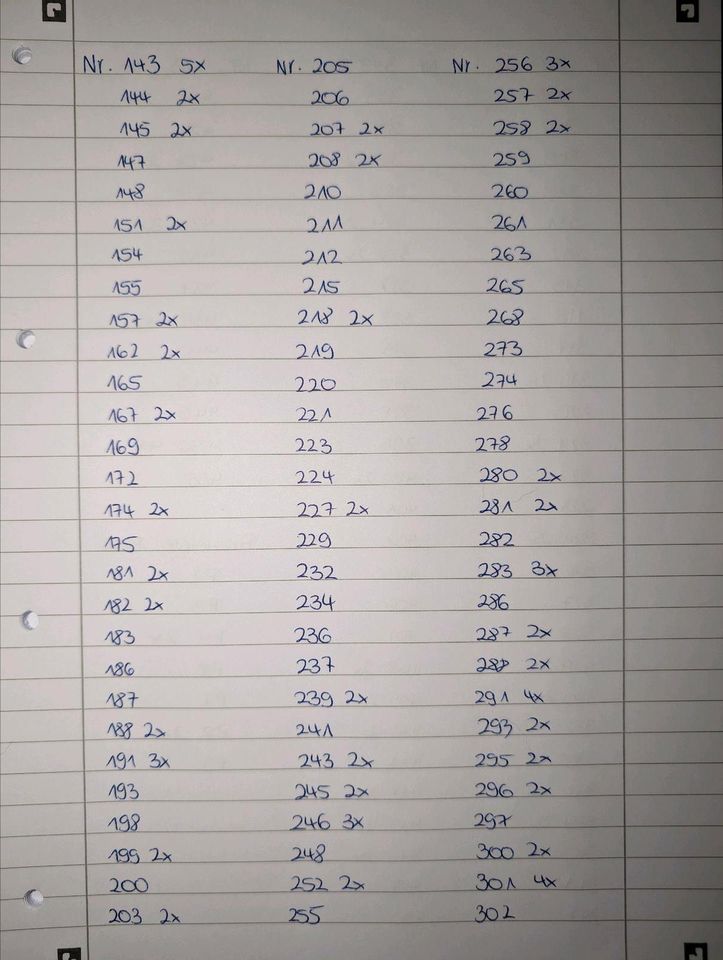 Nr. 143 5x
144 2x
145 2x
147
148
151 2x
154
155
157 2x
162 2x
165
167 2x
169
172
174 2x
175
181 2x
182 2x
183
186
187
188 2x
191 3x
193
198
199 2x
200
203 2x
Nr. 205
206
207 2x
208 2x
210
211
212
215
218 2x
219
220
221
223
224
227 2x
229
232
234
236
237
239 2x
241
243 2x
245 2x
246 3x
248
252 2x
255
Nr. 256 3x
257 2x
258 2x
259
260
261
263
265
268
273
274
276
278
280 2x
281 2x
282
283 3x
286
287 2x
2x
291 4x
293 2x
295 2x
296 2x
297
300 2x
301 4x
302